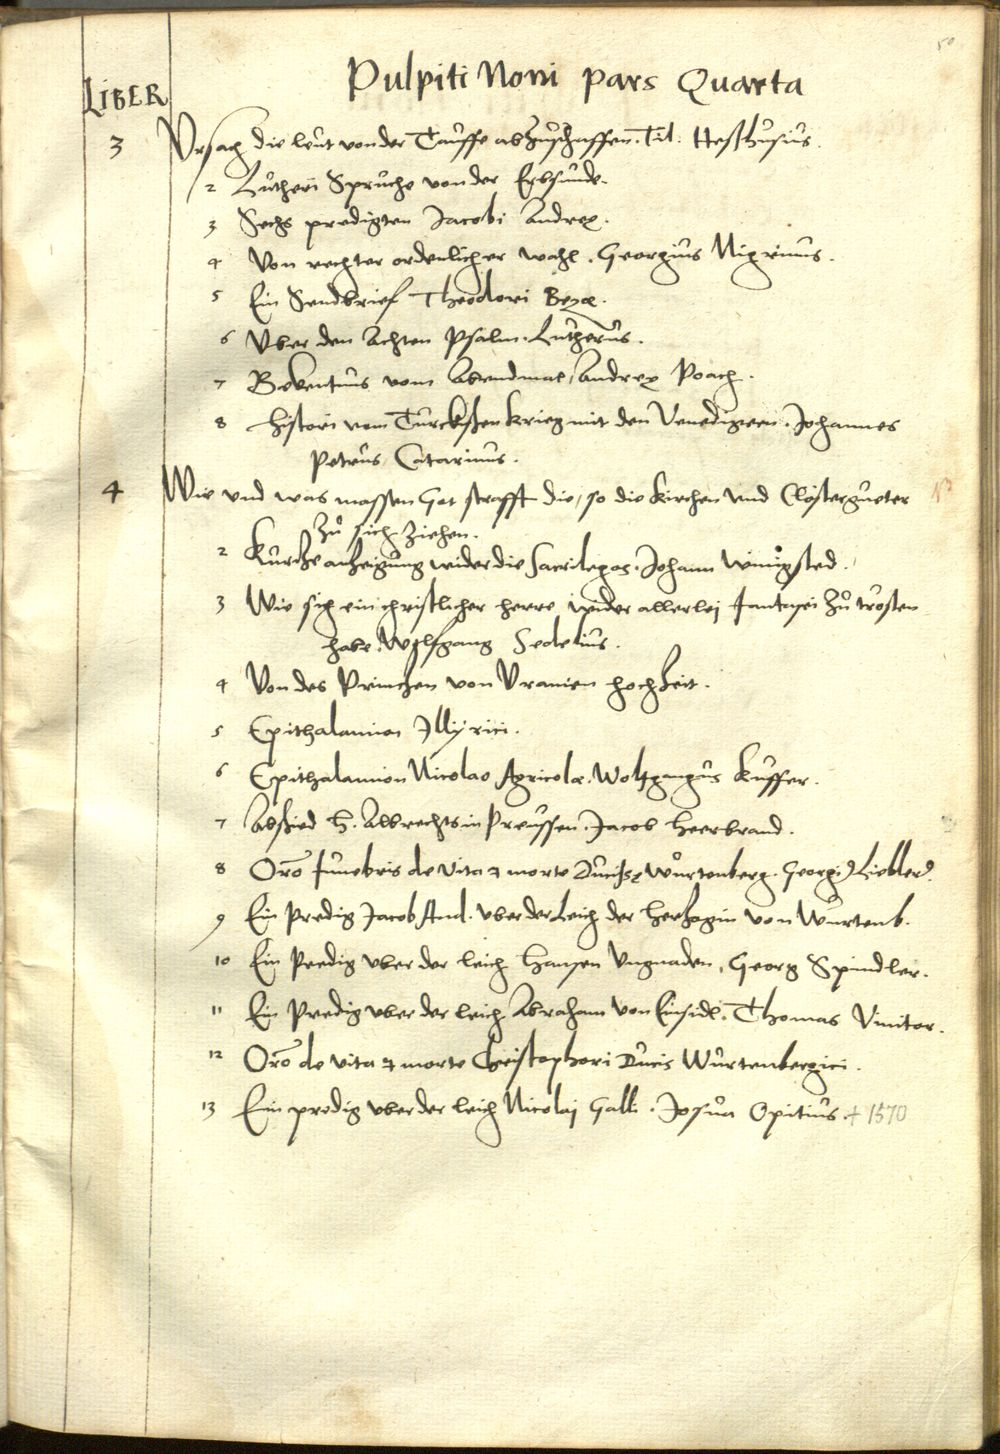 50
Pulpiti Noni pars Quarta
LIBER
3 Ursach die leut von der Tauffe abzuschaffen. Til. Heshusius.
2 Lutheri Spruche von der Erbsunde.
3 Sechs predigten Jacobi Andreę.
4 Von rechter ordenlicher wahl. Georgius Nigrinus.
5 Ein Sendbrief Theodori Bezæ.
6 Uber den Achten Psalm. Lutherus.
7 vom Abendmal, Andreę Poach.
8 Histori vom Turckischen krieg mit den Venedigern. Johannes
Petrus Catarinus.
4 Wie und was massen Got strafft die, so die kirchen und Clostergueter
zů sich ziehen.
2 Kurtze anzeigung wider die Sacrilegos. Johann Winigsted.
3 Wie sich ein christlicher herre wider allerlej fantasei zů trosten
habe. Wolfgang Sedelius.
4 Von des Printzen von Uranien hochzeit.
5 Epithalamion Illyrici.
6 Epithalamion Nicolao Agricolæ. Wolfgangus Kuffer.
7 Abschied H. Albrechts in Preussen. Jacob Heerbrand.
8 Orõ funebris de vita & morte Ducissę Wurtenberg. Georgij Liebler.
9 Ein Predig Jacob And. uber der Leich der Hertzogin von Wurtenb.
10 Ein Predig uber der leich Hansen Ungnaden, Georg Spindler.
11 Ein Predig uber der leich Abraham von Einsidl. Thomas Vinitor.
12 Orõ de vita & morte Christophori Ducis Wurtenbergici.
13 Ein predig uber der leich Nicolaj Galli. Josua Opitius. † 1570